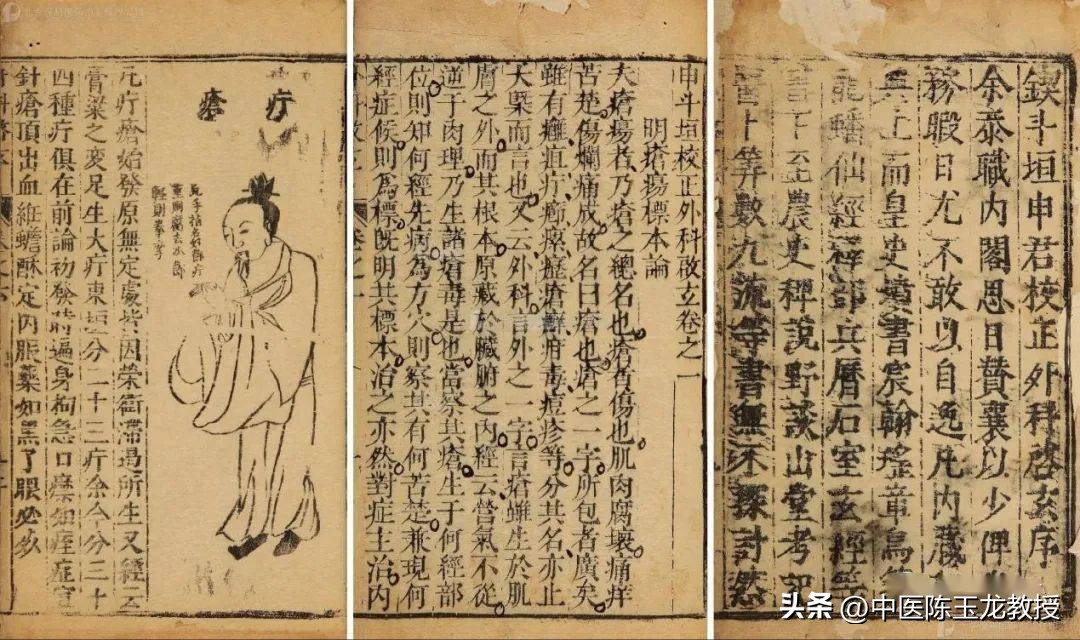 鍥斗垣申君校正外科啓玄序
余忝職內閣思日贊襄以少俾
務暇日尤不敢以自逸凡內藏
典上而皇史墳書宸翰瑤章烏
龍蟠仙經釋部兵曆石室玄經
書下至農史稗說野談山堂考
醫卜等數九流等書無不探討然
申斗垣校正外科啟玄卷之一
明瘡瘍標本論
夫瘡瘍者乃瘡之總名也瘡者傷也肌肉腐壞痛痒
苦楚傷爛痛成故名曰瘡也瘡之一字所包者廣矣
雖有癰疽疔癤瘰癧瘡癬疳毒痘疹等分其名亦止
大槩而言也又云外科言外之一字言瘡雖生於肌
膚之外而其根本原藏於臟腑之內經云營氣不從
逆于肉理乃生諸瘡毒是也當察其瘡生于何經部
位則知何經先病為方穴則察其有何苦楚兼現何
經症候則為標既明其標本治之亦然對症主治內
疔瘡
凡疔瘡始發原無定處皆因榮衛滯遏所生又經云
膏粱之変足生大疔東垣分二十三疔余今分三十
四種疔俱在前論初發時遍身拘急口如痓症宜
針瘡頂出血維蟾酥定內服藥如黑了服必
头条 @中医陈玉龙教授